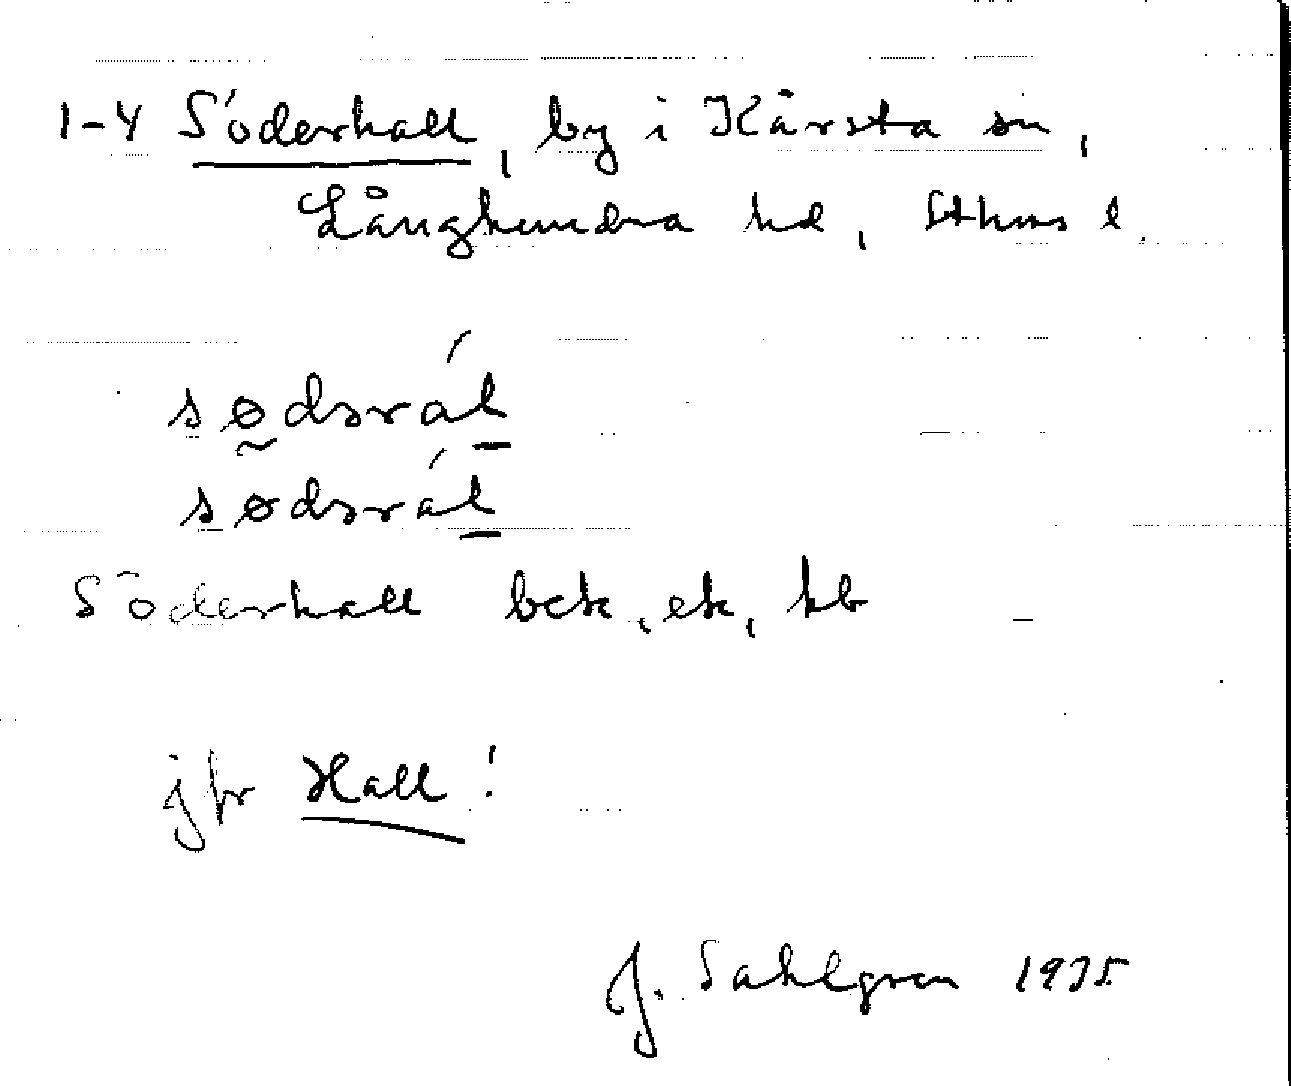 1-4 Söderhall, by i Kårsta sn,
Långhundra hd, Sthms l.
Söderhall bck, ek, hb
jfr Hall!
J. Sahlgren 1935